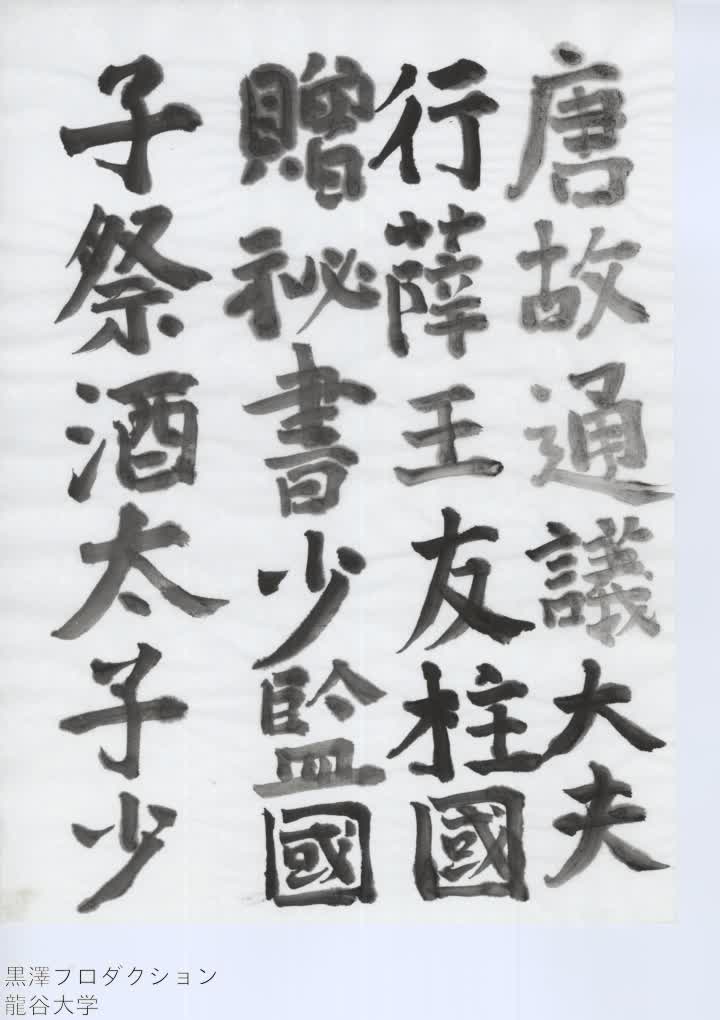 唐故通議大夫
行薛王友柱國
贈秘書少監國
子祭酒太子少
黒澤プロダクション
龍谷大学